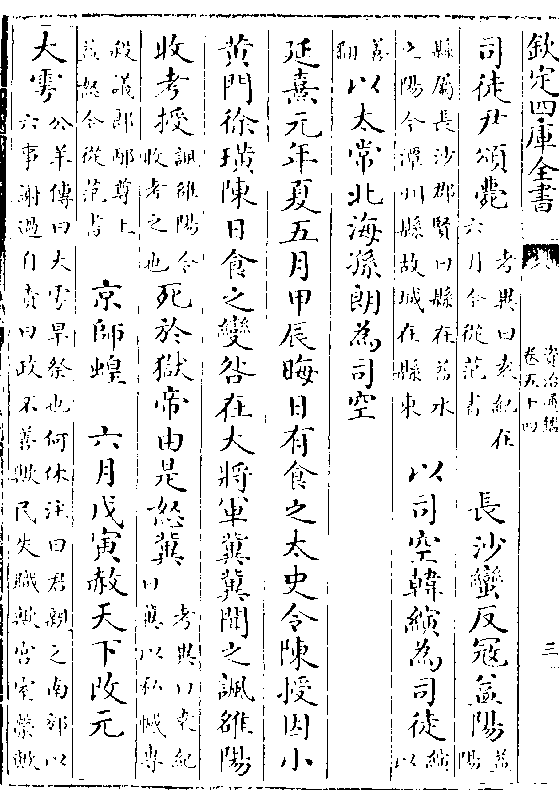 欽定四庫全書
資治通鑑
卷五十四
三
司徒尹頌薨考異曰袁紀在六月今從范書長沙蠻反寇益陽益陽
縣屬長沙郡賢曰縣在益水之陽今潭州縣故城在縣東以司空韓縯為司徒縯以
善翻以太常北海孫朗為司空
延熹元年夏五月甲辰晦日有食之太史令陳授因小
黄門徐璜陳日食之變咎在大將軍冀冀聞之諷雒陽
收考授諷雒陽令收考之也死於獄帝由是怒冀考異曰袁紀曰冀以私憾專
殺議郎邴尊上益怒今從范書京師蝗六月戊寅赦天下改元
大雩公羊傳曰大雩旱祭也何休注曰君親之南郊以六事謝過自責曰政不善歟民失職歟宫室榮歟